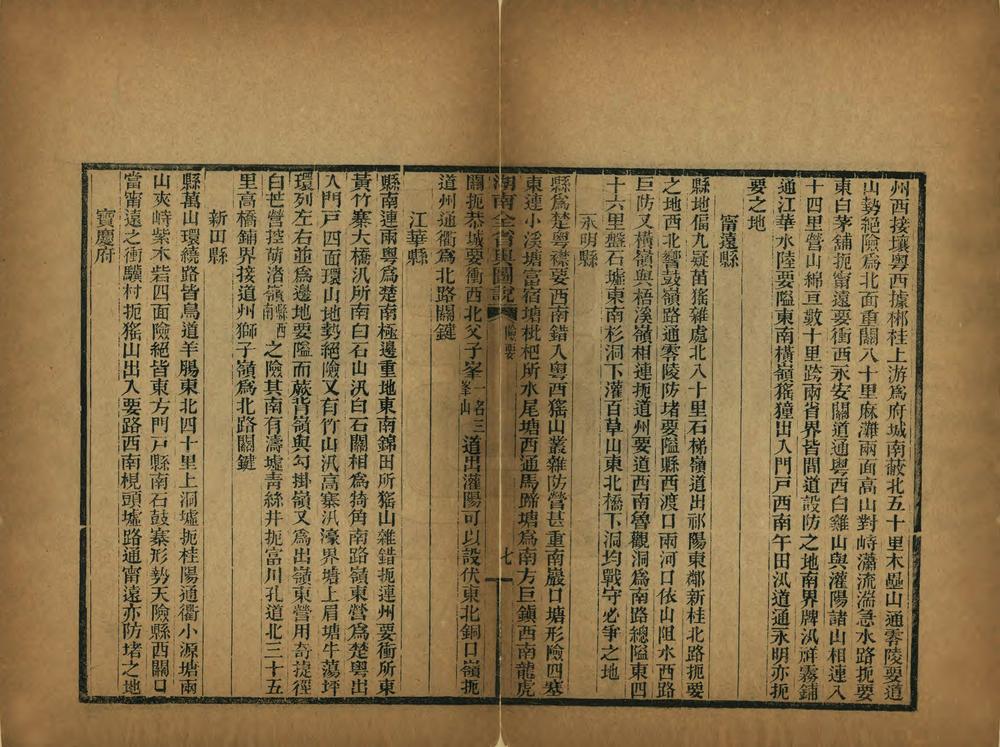 州西接壤粤西據郴桂上游爲府城南蔽北五十里木壘山通零陵要道
山勢絕險爲北面重關八十里麻灘兩面高山對峙瀟流湍急水路扼要
東白茅舖扼甯遠要衝西永安關道通粤西白雞山與灌陽諸山相連入
十四里營山綿亘數十里跨兩省界皆間道設防之地南界牌汛祥霧鋪
通江華水陸要隘東南橫嶺猺獞出入門戸西南午田汛道通永明亦扼
要之地
甯遠縣
縣地偪九疑苗猺雜處北八十里石梯嶺道出祁陽東鄰新桂北路扼要
之地西北響鼓嶺路通零陵防堵要隘縣西渡口兩河口依山阻水西路
巨防又橫嶺與梧溪嶺相連扼道州要道西南魯觀洞爲南路總隘東四
十六里盤石墟東南杉洞下灌百草山東北橋下洞均戰守必爭之地
永明縣
縣爲楚粤襟要西南錯入粤西猺山叢雜防營甚重南巖口塘形險四塞
東連小溪塘富宿塘枇杷所水尾塘西通馬蹄塘爲南方巨鎮西南龍虎
湖南全省輿圖說 險要 七
關扼恭城要衝西北父子峯一名三峯山道出灌陽可以設伏東北銅口嶺扼
道州通衢爲北路關鍵
江華縣
縣南連兩粤爲楚南極邊重地東南錦田所猺山雜錯扼連州要衝所東
黃竹寨大橋汛所南白石山汛白石關相爲犄角南路嶺東營爲楚粤出
入門戸四面環山地勢絕險又有竹山汛高寨汛濠界塘上眉塘牛蕩坪
環列左右並爲邊地要隘而蕨背嶺與勾掛嶺又爲出嶺東營用奇捷徑
白芒營控萌渚嶺縣西南之險其南有濤墟青絲井扼富川孔道北三十五
里高橋鋪界接道州獅子嶺爲北路關鍵
新田縣
縣萬山環繞路皆鳥道羊腸東北四十里上洞墟扼桂陽通衢小源塘兩
山夾峙紫木砦四面險絕皆東方門戸縣南石鼓寨形勢天險縣西關口
當甯遠之衝驥村扼猺山出入要路西南梘頭墟路通甯遠亦防堵之地
寶慶府